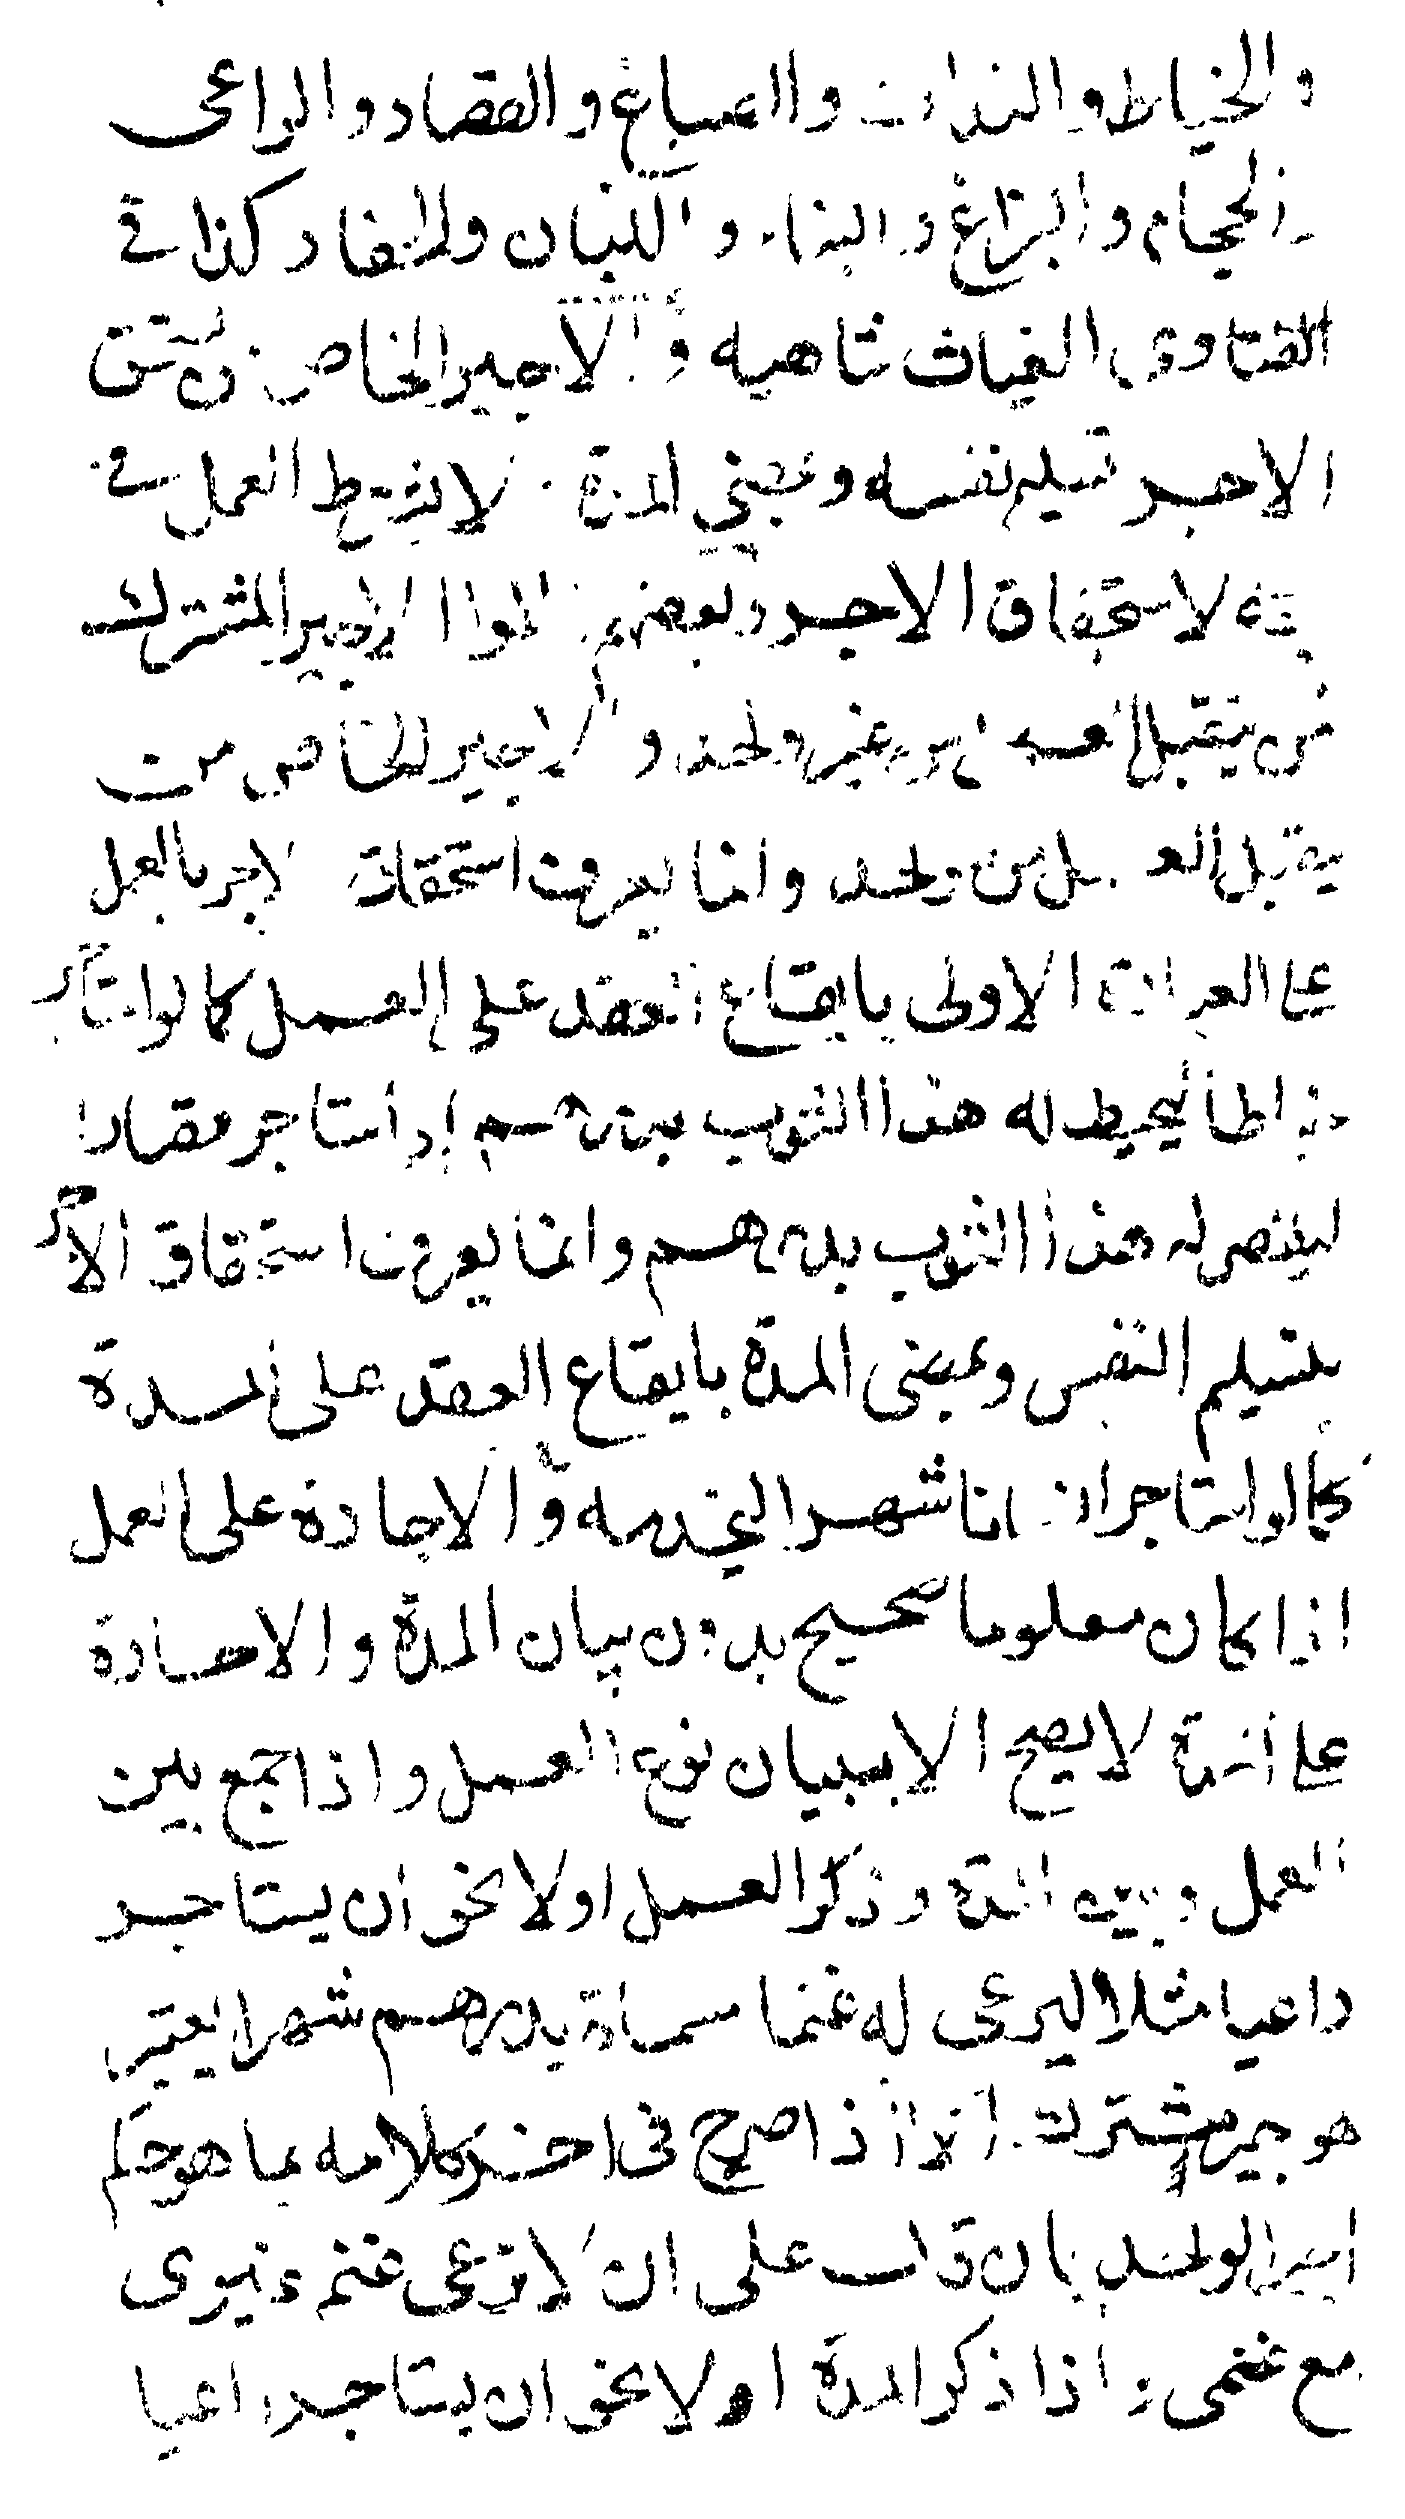 والخياط والنداف والصباغ والقصار والراعى
والحجام والبزاغ والبناء و اللبان والحفار كذا فى
الفتاوى الغياث شاهيه و الاجير الخاص من يستحق
الاجر بتسليم نفسه وبمضي المدة ولا يشترط العمل فى
حقه لاستحقاق الاجر وبعضهم قالوا الاجير المشترك
من يتقبل العمل من غير واحد و الاجير الخاص من
يتقبل العمل من واحد وانما يعرف استحقاق الاجر بالعمل
على العبارة الاولى بايقاع العقد على العمل كما لو استاجر
خياطا ليخيط له هذا الثوب بدرهم او استاجر قصارا
ليقصر له هذا الثوب بدرهم وانما يعرف استحقاق الاجر
بتسليم النفس وبمضى المدة بايقاع العقد على المدة
كما لو استاجر انسانا شهرا ليخدمه و الاجارة على العمل
اذا كان معلوما صحيح بدون بيان المدة والاجارة
على المدة لا يصح الا ببيان نوع العمل واذا جمع بين
العمل وبين المدة وذكر العمل اولا نحو ان يستاجر
راعيا مثلا ليرعى له غنما مسماة بدرهم شهرا يعتبر
هو اجير مشترك الا اذا صرح فى اخر كلامه بما هو حكم
اجير الواحد بان قال على ان لا ترعى غنم غيرى
مع غنمى واذا ذكر المدة اولا نحو ان يستاجر راعيا